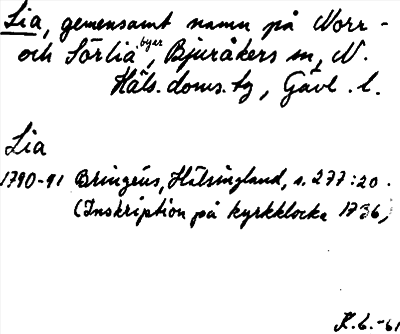 Lia, gemensamt namn på Norr-
och Sörlia byar, Bjuråkers sn, N.
Häls. doms. tg, Gävl. l.
Lia
1790-91 Bringéus, Hälsingland, s. 277:20.
(Inskription på kyrkklocka 1736,
K.L.-61